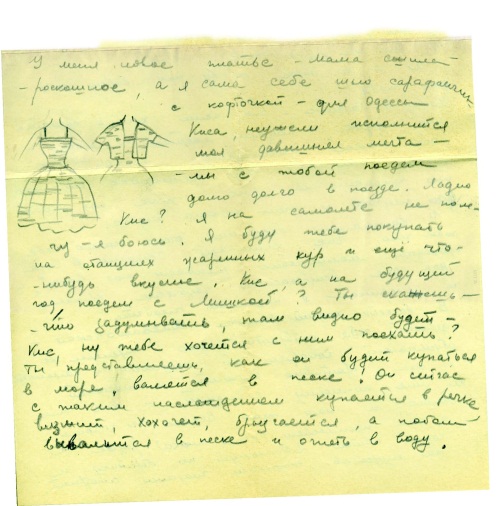 У меня новое платье - мама сшила
- роскошное, а я сама себе шью сарафанчик
с кофточкой - для Одессы
Киса, неужели исполнится
моя давнишняя мечта -
- мы с тобой поедем
долго долго в поезде. Ладно
Кис? Я на самолете не поле-
чу - я боюсь. Я буду тебе покупать
на станциях жаренных кур и ещё что-
-нибудь вкусное. Кис, а на будущий
год поедем с Мишкой? Ты скажешь -
- что задумывать, там видно будет -
Кис, ну тебе хочется с ним поехать?
Ты представляешь, как он будет купаться
в море, валяться в песке! Он сейчас
с таким наслаждением купается в речке
визжит, хохочет, брызгается, а потом
вываляется в песке и опять в воду.